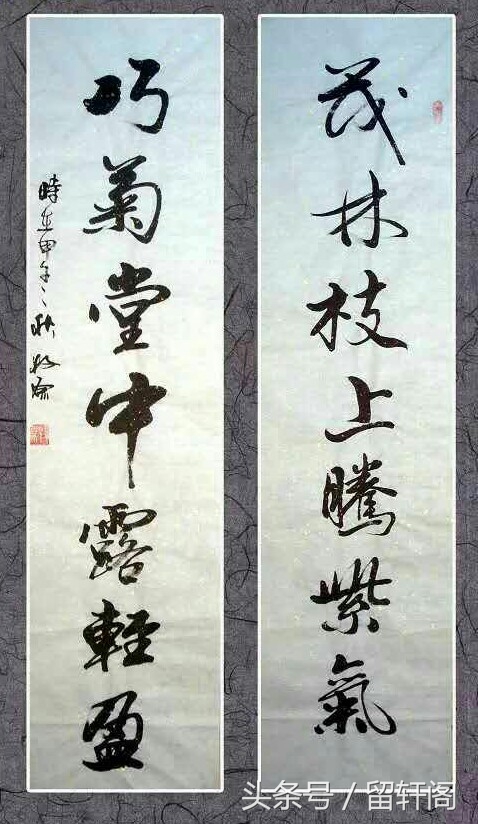 茂林枝上騰紫氣
巧菊堂中露輕盈
時在甲午之秋
头条号 / 留轩阁